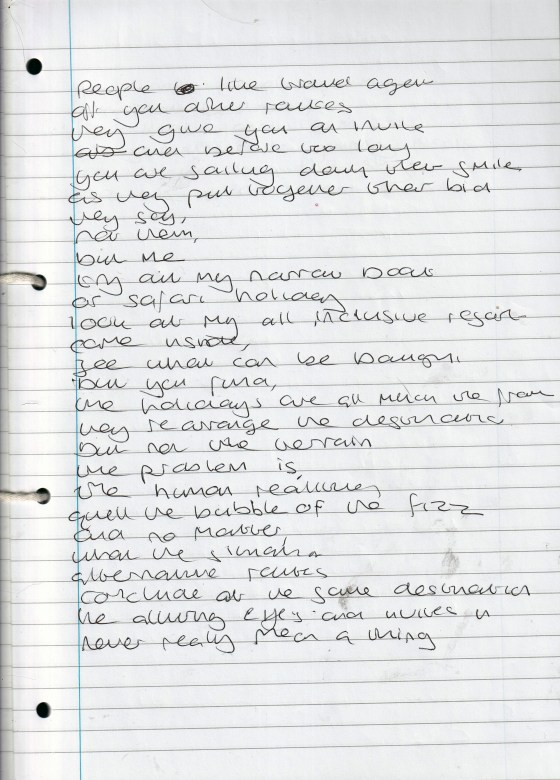 People like travel agent
off you other routes
they give you an invite
and before too long
you are sailing down their smile
as they put together their bid
they say,
not them,
but me
try all my narrow boats
or safari holiday
look at my all inclusive resort
come inside,
see what can be bought.
but you find,
the holidays are all much the same
they rearrange the destination
but not the terrain
the problem is,
the human realities
quell the bubble of the fizz
and no matter,
what the situation
alternative routes
conclude at the same destination
the alluring eyes and invites in
never really mean a thing